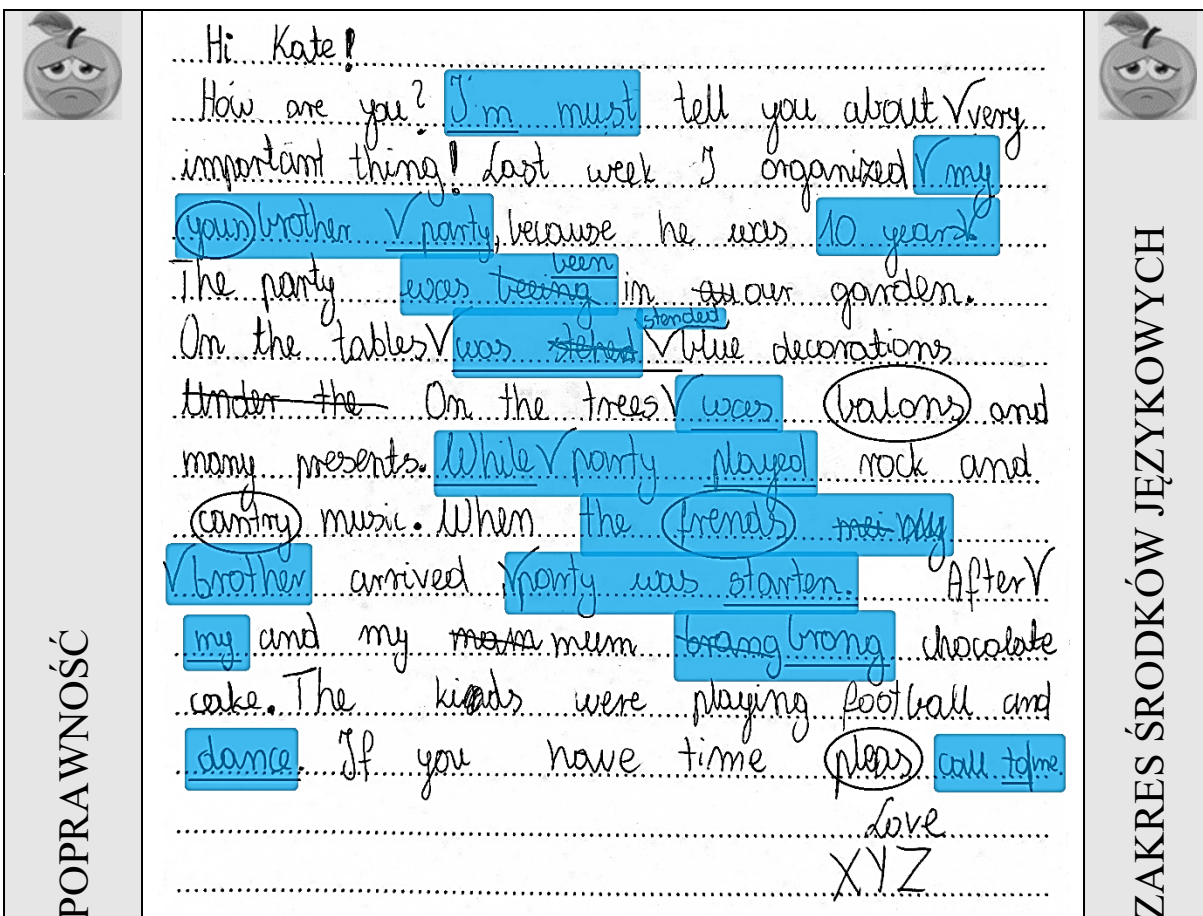 POPRAWNOŚĆ
Hi Kate!
How are you? I'm must tell you about V very
important thing! Last week I organized V my
youn brother V party, because he was 10 years V
The party was beeing been in qu our garden.
On the tables V was stended V blue decorations
Under the On the trees V was balons and
many presents. While V party played rock and
cantry music. When the frends mei my
V brother arrived V party was starten. After V
my and my mom mum brang brong chocolate
cake. The kids were playing football and
dance. If you have time pleas call to me.
Love
XYZ
ZAKRES ŚRODKÓW JĘZYKOWYCH